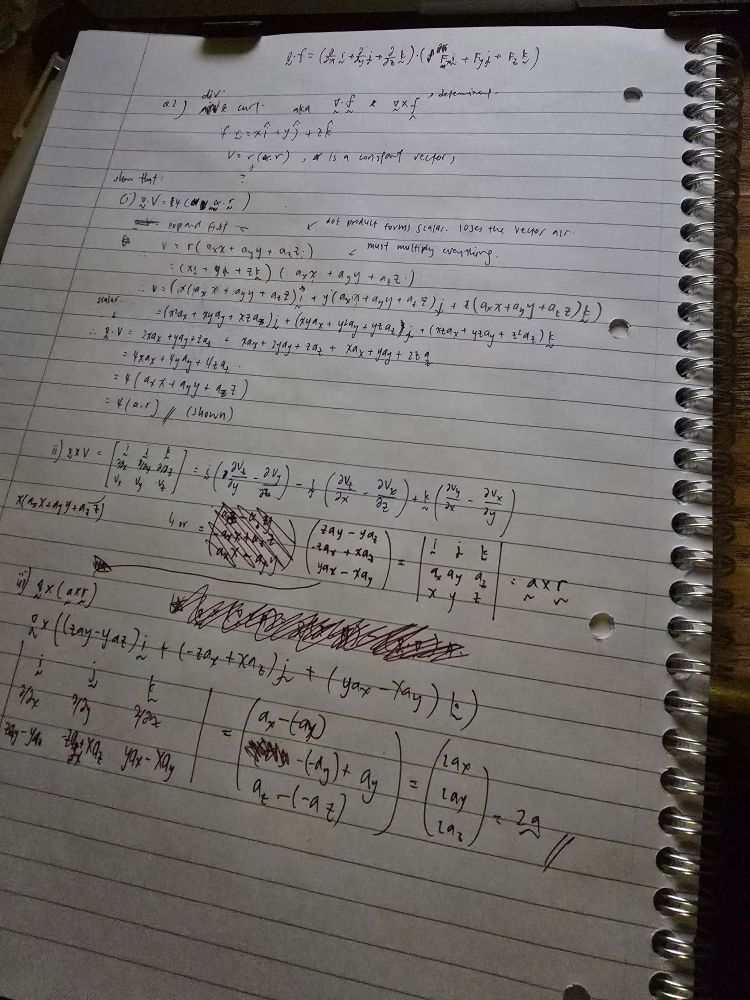 ∇·f = (∂/∂x i + ∂/∂y j + ∂/∂z k)·(Fx i + Fy j + Fz k)
div
Q2) & curl. aka ∇·f & ∇×f → determinant
r = xî + yĵ + zk̂
V = r(a.r), a is a constant vector,
show that:
(i) ∇.V = 4(a.r)
expand first ← ↙ dot product forms scalar. loses the vector dir.
V = r(axx + ayy + azz.) ↙ must multiply everything.
= (xi + yj + zk) (axx + ayy + azz.)
∴ V = (x(axx + ayy + azz) i + y(axx + ayy + azz) j + z(axx + ayy + azz) k)
scalar = (x²ax + xyay + xzaz) i + (xyax + y²ay + yzaz) j + (xzax + yzay + z²az) k
∴ ∇.V = 2xax + yay + zaz + xax + 2yay + zaz + xax + yay + 2zaz
= 4xax + 4yay + 4zaz.
= 4(axx + ayy + azz)
= 4(a.r) // (shown)
ii) ∇×V = [i j k ∂/∂x ∂/∂y ∂/∂z Vx Vy Vz] = i(∂Vz/∂y − ∂Vy/∂z) − j(∂Vz/∂x − ∂Vx/∂z) + k(∂Vy/∂x − ∂Vx/∂y)
x(axx + ayy + azz)
↳ or = (zay − yaz −zax + xaz yax − xay) = |i j k ax ay az x y z| = a×r
iii) ∇×(a×r)
∇×((zay − yaz) i + (−zax + xaz) j + (yax − xay) k)
|i j k ∂/∂x ∂/∂y ∂/∂z zay − yaz −zax + xaz yax − xay| = (ax − (−ax) −(−ay) + ay az − (−az)) = (2ax 2ay 2az) = 2a //